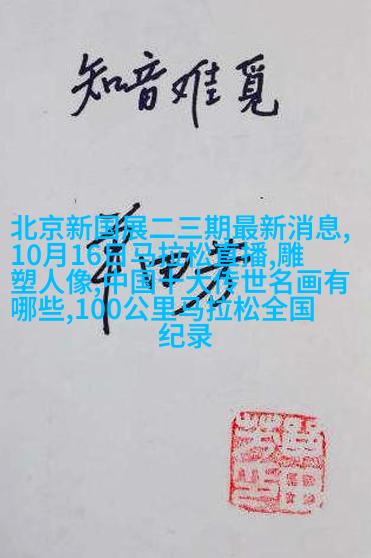 知音难觅
北京新国展二三期最新消息,
10月16日马拉松直播,雕
塑人像,中国十大传世名画有
哪些,100公里马拉松全国
纪录